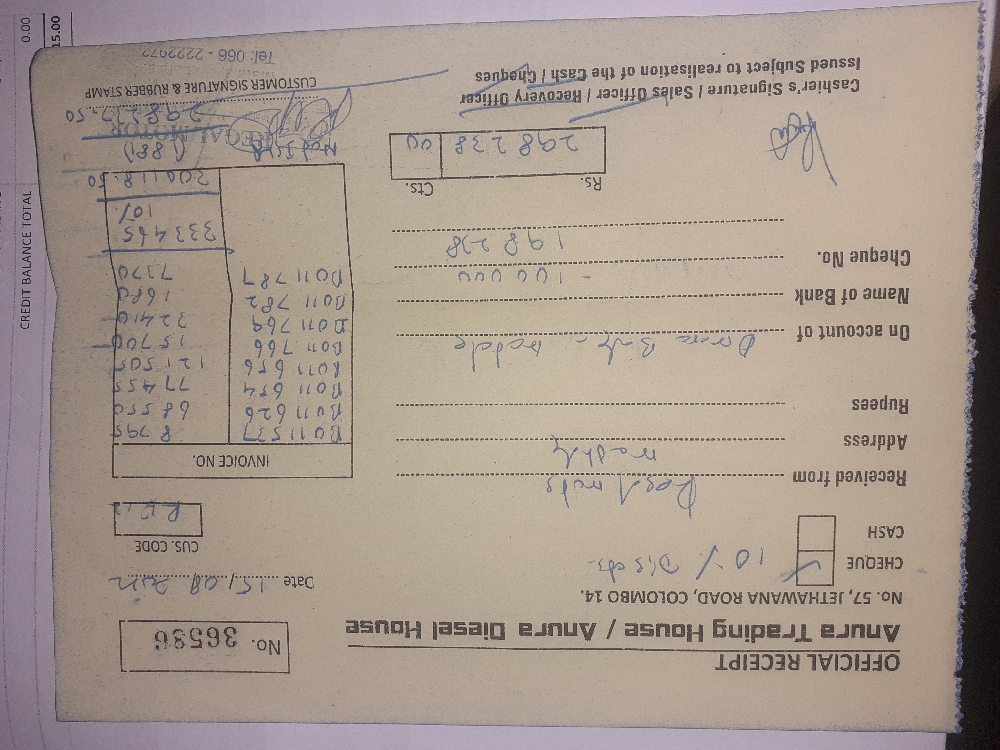 OFFICIAL RECEIPT
Anura Trading House / Anura Diesel House
No. 57, JETHAWANA ROAD, COLOMBO 14.
No. 36586
CHEQUE 10% Disct
CASH
Date 15/08/
CUS. CODE
Received from
Address
Rupees
On account of
Name of Bank - 100 000
Cheque No. 198 238
INVOICE NO.
B011537 8795
B011626 68550
B011654 77455
B011656 121505
B011766 15700
B011769 32410
B011782 1680
B011787 7370
333465
10%
300118.50
(1881)
298237.50
Rs. Cts.
298238 00
REGAL MOTOR
Cashier's Signature / Sales Officer / Recovery Officer
Issued Subject to realisation of the Cash / Cheques
CUSTOMER SIGNATURE & RUBBER STAMP
Tel: 066 - 2222972
CREDIT BALANCE TOTAL
0.00
15.00